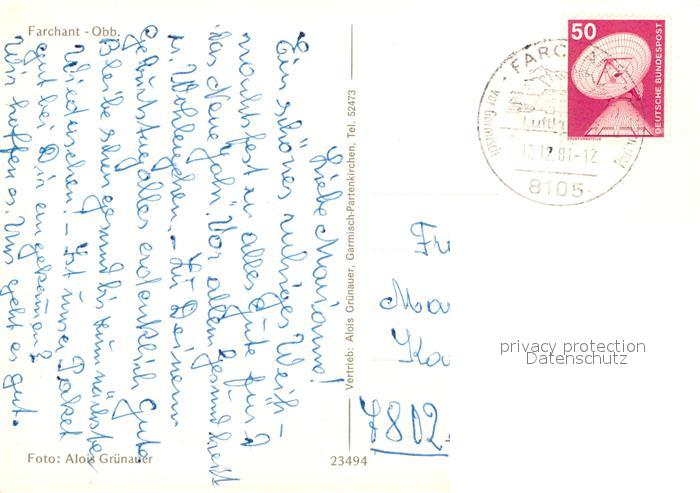 Farchant - Obb.
Liebe Marianne!
Ein schönes ruhiges Weih-
nachtsfest u. alles Gute für
das Neue Jahr. Vor allem Gesundheit
u. Wohlergehen. - Zu Deinem
Geburtstag alles erdenklich Gute
Bleibe schön gesund bis zum nächsten
Wiedersehen! - Ist unser Paket
gut bei Dir angekommen?
Wir hoffen es. Uns geht es gut.
Foto: Alois Grünauer
23494
Vertrieb: Alois Grünauer, Garmisch-Partenkirchen, Tel. 52473
50
DEUTSCHE BUNDESPOST
FARC
Luft
12.12.81-12
8105
Fr
Ma
Ka
7802
privacy protection
Datenschutz